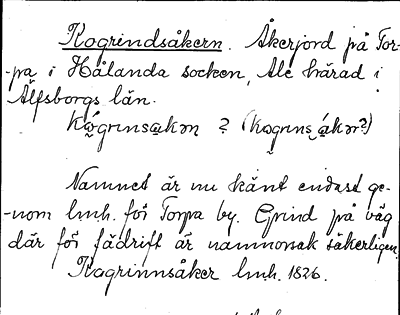 Kogrindsåkern. Åkerjord på Tor-
-pa i Hålanda socken, Ale härad i
Älfsborgs län.
? (
?)
Namnet är nu känt endast ge-
-nom lmh. för Torpa by. Grind på väg
där för fädrift är namnorsak säkerligen.
Kogrinnsåker lmh. 1826.